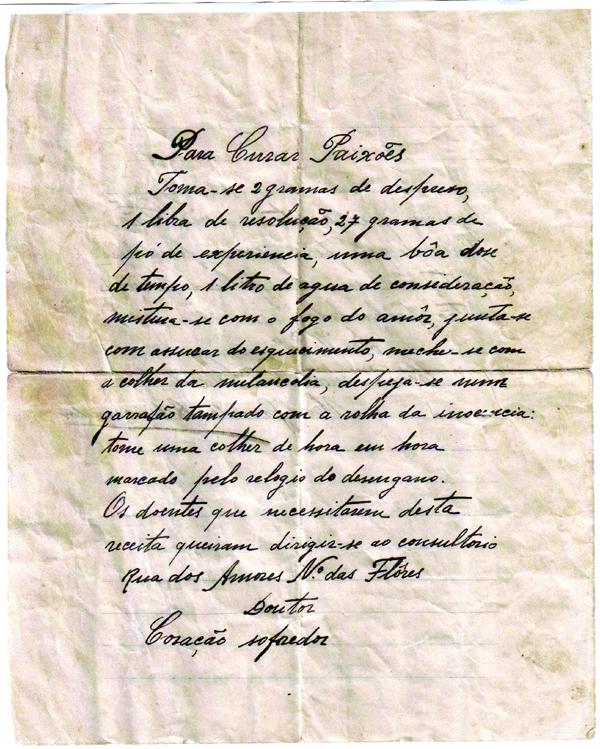 Para Curar Paixões
Toma-se 2 gramas de despreso,
1 libra de resolução, 27 gramas de
pó de experiencia, uma bôa dose
de tempo, 1 litro de agua de consideração,
mistura-se com o fogo do amôr, junta-se
com assucar do esquecimento, meche-se com
a colher da melancolia, despeja-se num
garrafão tampado com a rolha da inocencia:
tome uma colher de hora em hora
marcado pelo relogio do desengano.
Os doentes que necessitarem desta
receita queiram dirigir-se ao consultorio
Rua dos Amores Nº das Flôres
Doutor
Coração sofredor